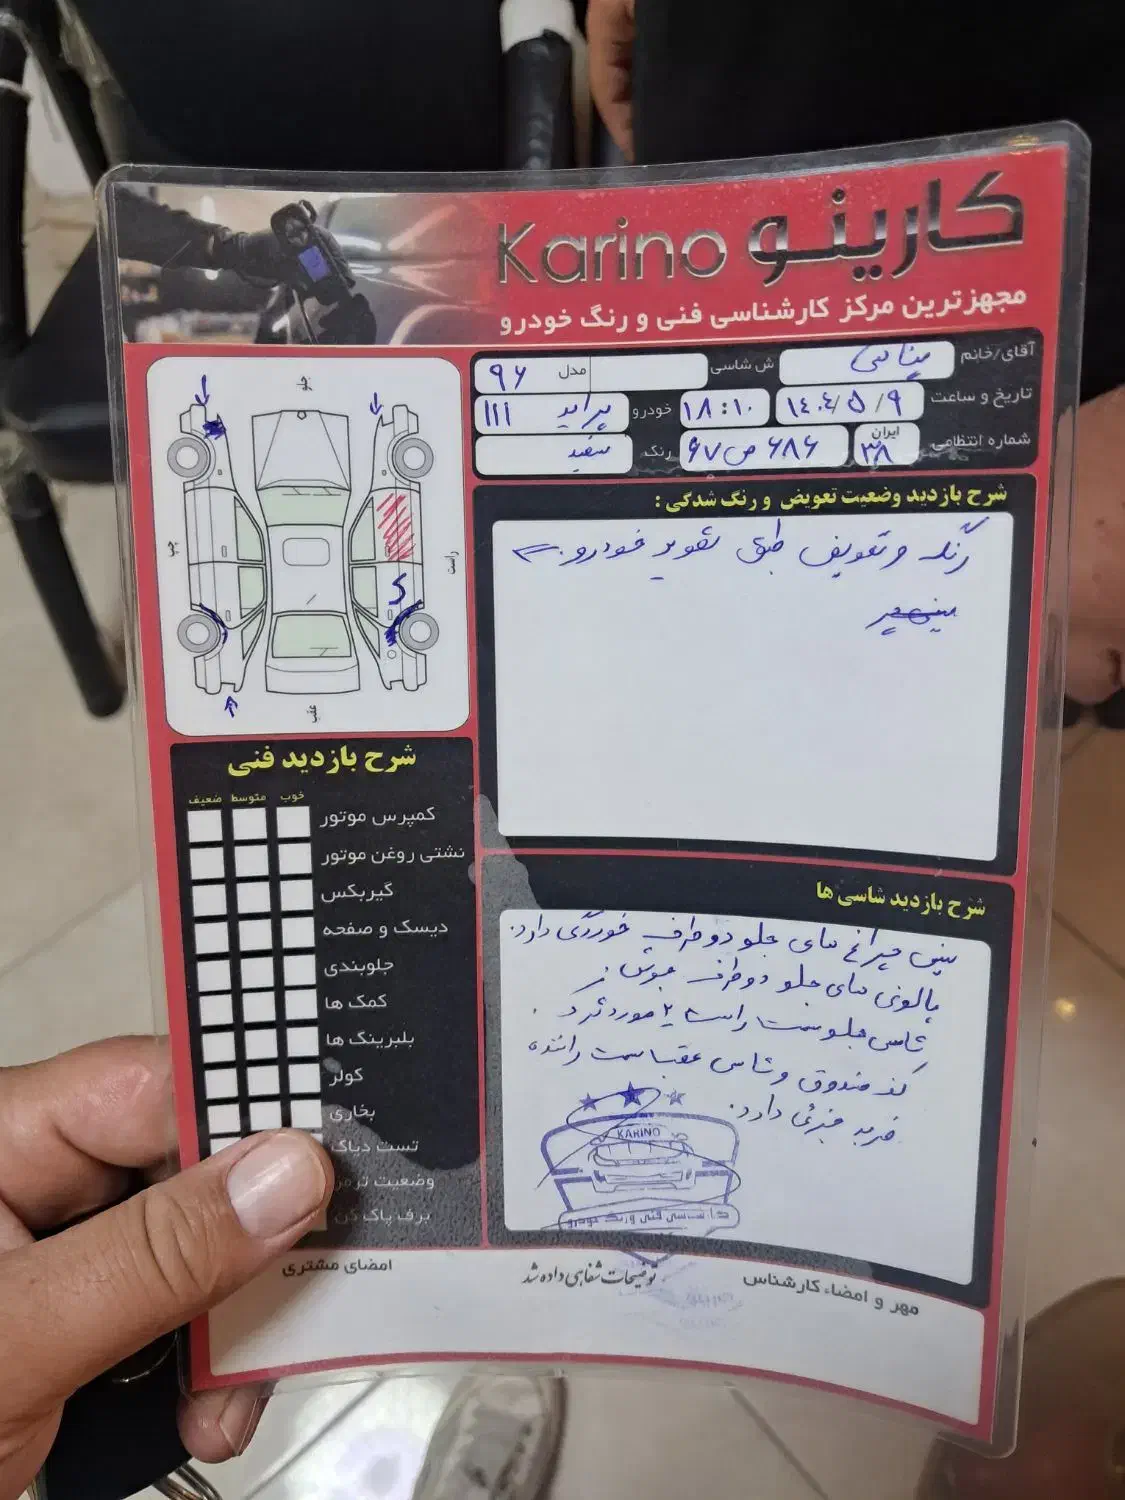 کارینو Karino
مجهزترین مرکز کارشناسی فنی و رنگ خودرو
آقای/خانم ش شاسی مدل ۹۶
تاریخ و ساعت ۱۴۰۴/۵/۹ ۱۸:۱۰ خودرو پراید ۱۱۱
شماره انتظامی ایران ۳۸ ۶۸۶ ص ۶۷ رنگ سفید
جلو
چپ
راست
عقب
شرح بازدید وضعیت تعویض و رنگ شدگی :
رنگ و تعویض طبق تصویر خودرو
شرح بازدید فنی
خوب متوسط ضعیف
کمپرس موتور
نشتی روغن موتور
گیربکس
دیسک و صفحه
جلوبندی
کمک ها
بلبرینگ ها
کولر
بخاری
تست دیاگ
وضعیت ترمز
برف پاک کن
شرح بازدید شاسی ها
سینی چراغ های جلو دو طرف خوردگی دارد.
پالونی های جلو دو طرف جوش
شاسی جلو سمت راست ۲ مورد
کف صندوق و شاسی عقب سمت راننده
ضربه جزئی دارد.
KARINO
کارشناسی فنی و رنگ خودرو
مهر و امضاء کارشناس
توضیحات شفاهی داده شد
امضای مشتری